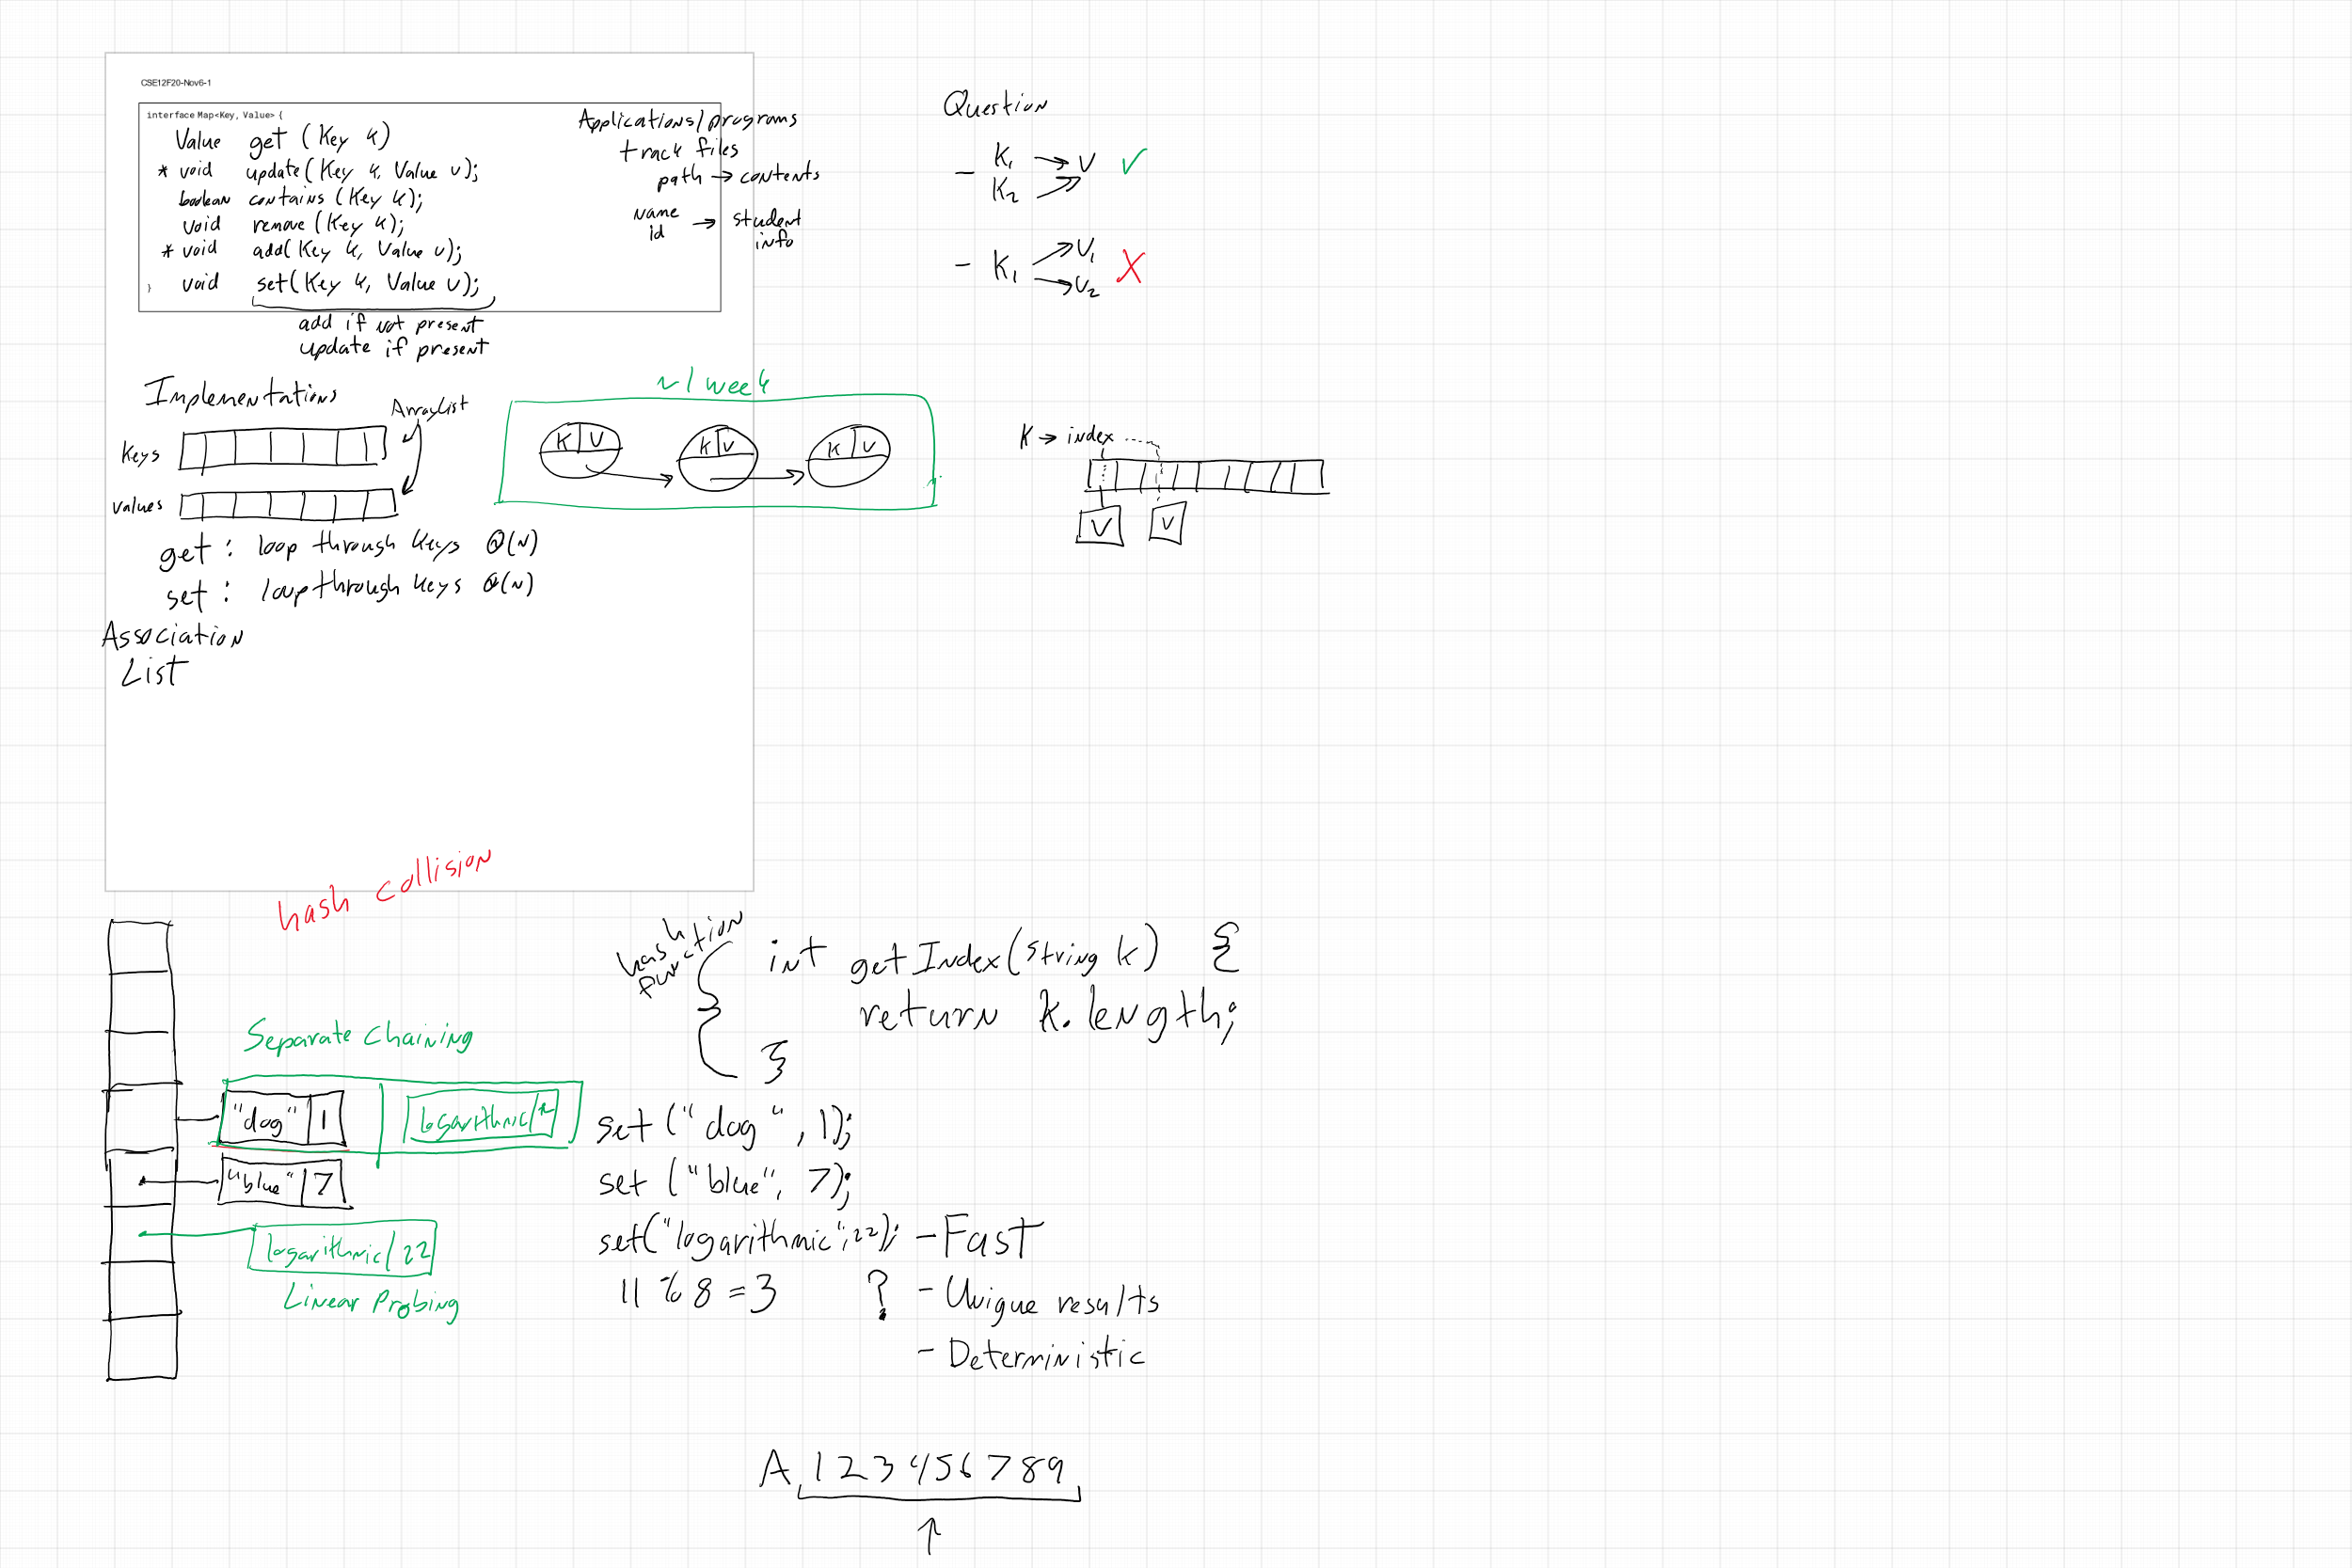 CSE12F20-Nov6-1
interface Map<Key, Value> {
Value get (Key k)
* void update(Key k, Value v);
boolean contains (Key k);
void remove (Key k);
* void add(Key k, Value v);
} void set(Key k, Value v);
add if not present
update if present
Applications/programs
track files
path → contents
name
id → student
info
Question
- K₁ → V ✓
K₂
- K₁ → V₁ X
→ V₂
Implementations
ArrayList
Keys
values
get : loop through keys Θ(N)
set : loop through keys Θ(N)
Association
List
~1 week
K V
K V
K V
K → index
V V
hash collision
hash
function
int getIndex(String k) {
return k.length;
}
Separate Chaining
"dog" 1
logarithmic
"blue" 7
logarithmic 22
Linear Probing
set ("dog", 1);
set ("blue", 7);
set("logarithmic", 22);
11 % 8 = 3
- Fast
? - Unique results
- Deterministic
A 123456789
↑